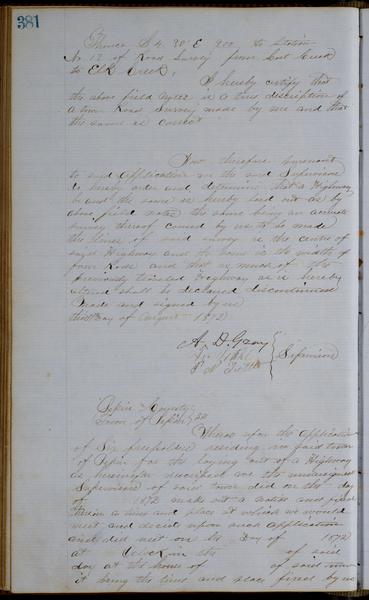 381
Thence S 4 30' E 900 to Station
No 12 of Road Survey from Lost Creek
to Elk Creek.
I hereby certify that
the above field notes is a true description of
a true Road Survey made by me and that
the same is correct
Now therefore pursuant
to said application we the said Supervisors
do hereby order and determine that a Highway
be and the same is hereby laid out as by
above field notes the same being an accurate
survey thereof caused by us to be made
the lines of said survey is the centre of
said Highway and the same is the width of
four Rods and that so much of the
previously located Highway as is hereby
altered shall be declared discontinued
Made and signed by us
this Day of August 1872
A. D. Gray
Supervisors
Pepin County
Town of Pepin } SS
Whereas upon the application
of Six freeholders residing in said town
of Pepin for the laying out of a Highway
as hereinafter described we the undersigned
Supervisors of said town did on the day
of 1872 make out a notice and fixed
therein a time and place at which we would
meet and decide upon such application
and did meet on the Day of 1872
at Oclock in the of said
day at the house of of said town
it being the time and place fixed by us